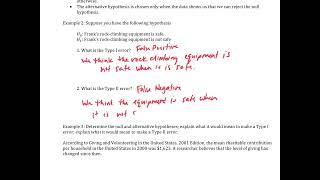 otherwise.
• The alternative hypothesis is chosen only when the data shows us that we can reject the null
hypothesis.
Example 2: Suppose you have the following hypothesis
H₀: Frank's rock-climbing equipment is safe.
Hₐ: Frank's rock-climbing equipment is not safe
1. What is the Type I error? False Positive
We think the rock climbing equipment is
not safe when it is safe.
2. What is the Type II error? False Negative
We think the equipment is safe when
it is not s
Example 3: Determine the null and alternative hypotheses; explain what it would mean to make a Type I
error; explain what it would mean to make a Type II error:
According to Giving and Volunteering in the United States, 2001 Edition, the mean charitable contribution
per household in the United States in 2000 was $1,623. A researcher believes that the level of giving has
changed since then.